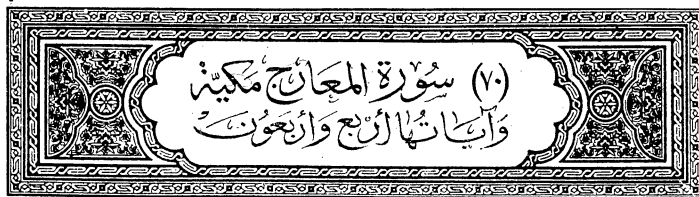 (٧٠) سُورَة المعَارج مَكيّة
وَآيَاتُها أربَع وَأربَعُونَ